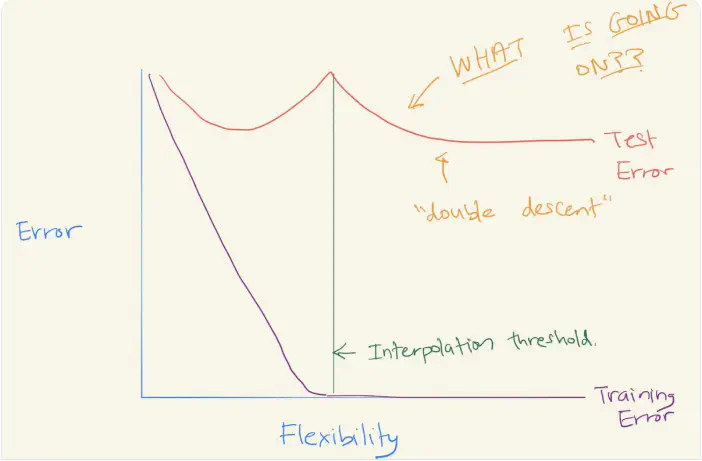 WHAT IS GOING
ON??
Test
Error
"double descent"
Error
← Interpolation threshold.
Training
Error
Flexibility